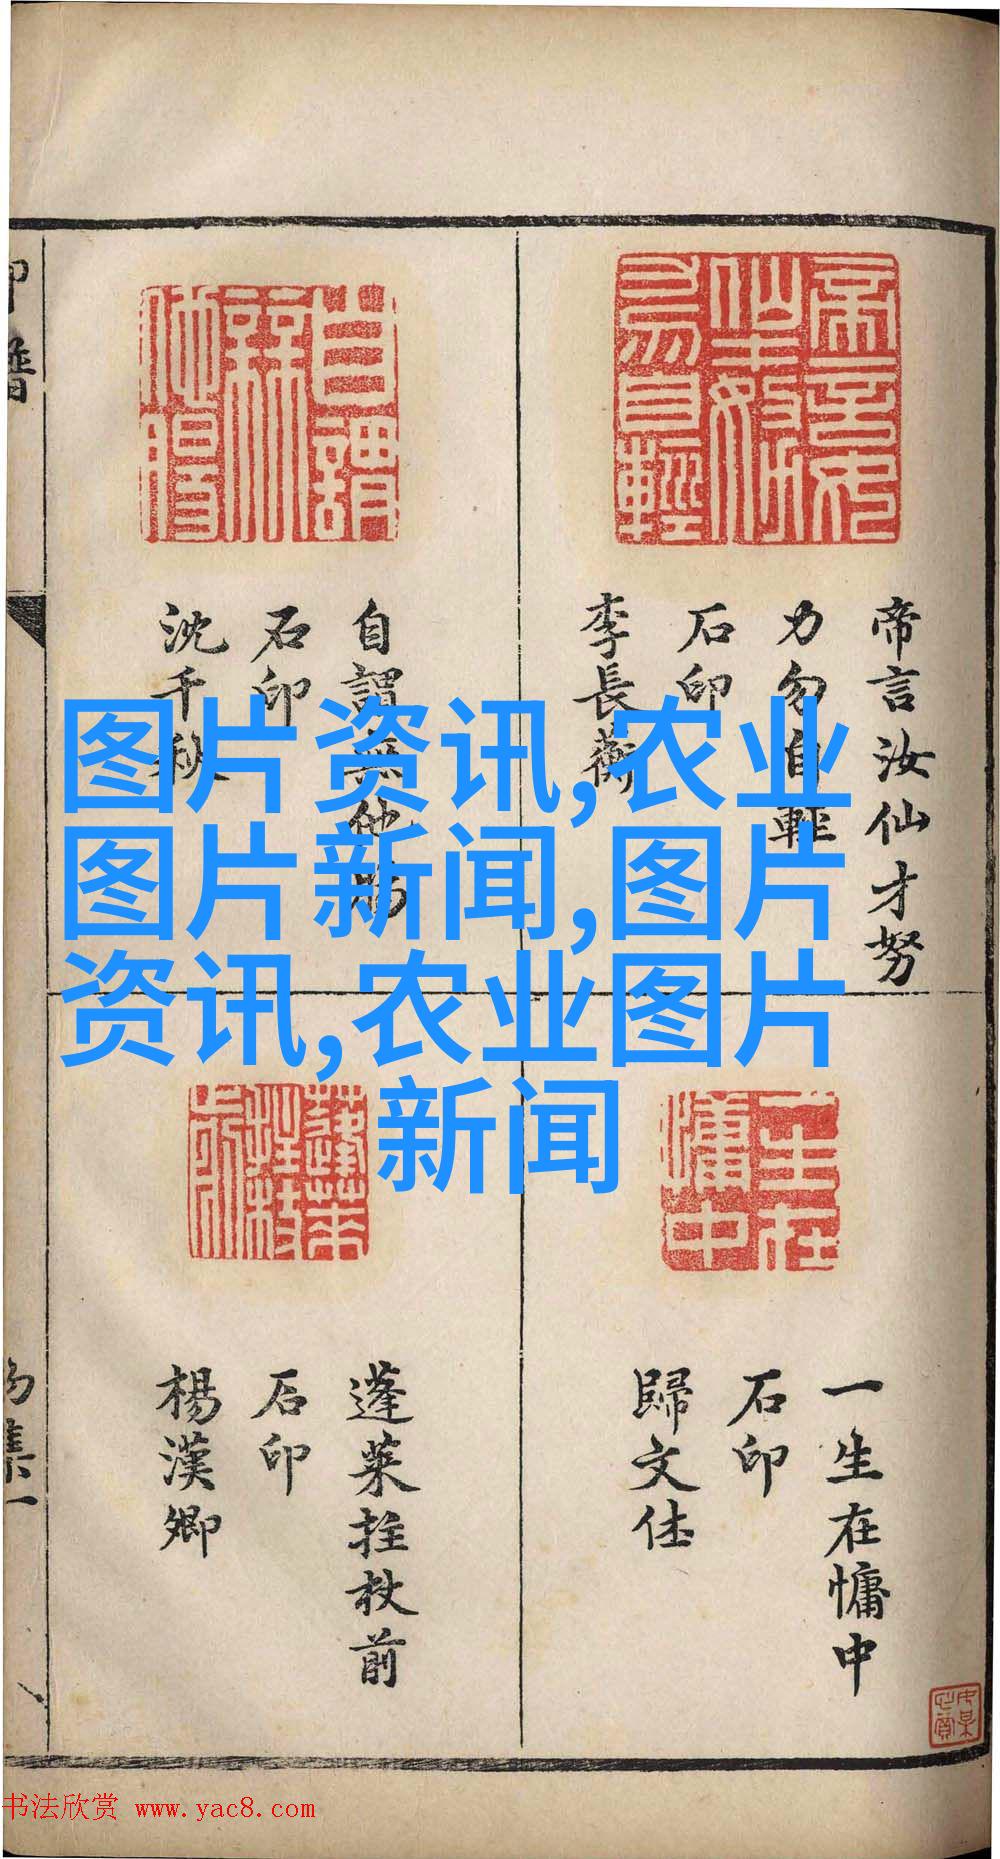 帝言汝仙才努
力勿自輕
石印
李長蘅
自謂無他腸
石印
沈千秋
一生在慵中
石印
歸文休
蓬萊拄杖前
石印
楊漢卿
图片资讯,农业
图片新闻,图片
资讯,农业图片
新闻
书法欣赏 www.yac8.com